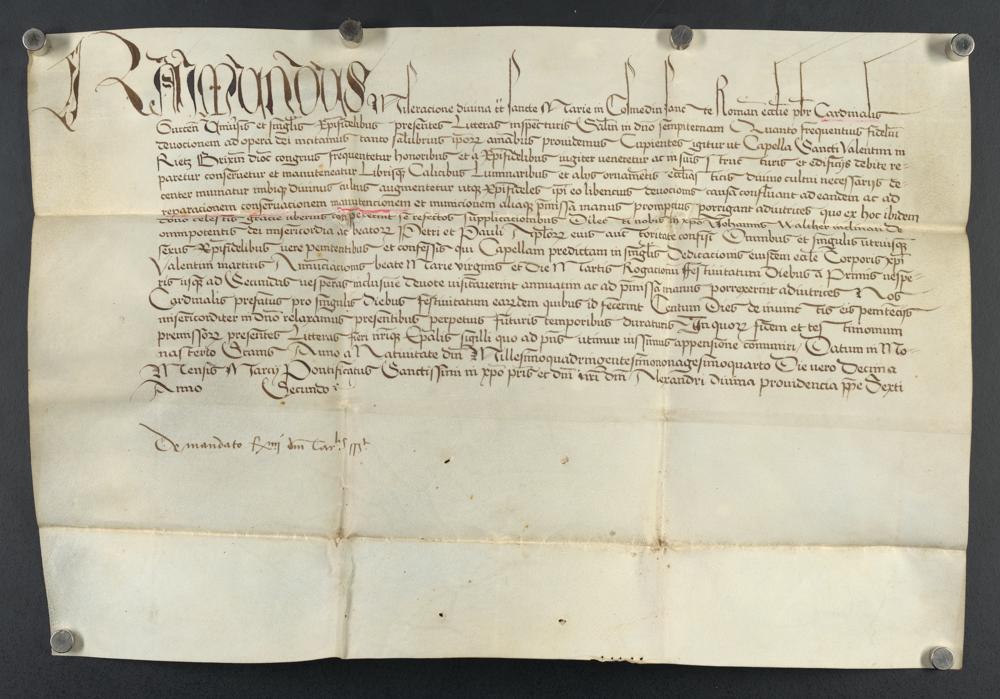 Raymundus Miseracione divina tt̄ Sancte Marie in Cosmedin Sancte Roman̄ ecclie pbr̄ Cardinalis
Gurceñ Uniūsis et singl̄is Xp̄ifidelibus presentes Litteras inspecturis Salt̄m in dn̄o sempiternam Quanto frequentius fideliū
devocionem ad opera dei incitamus tanto salubrius ipor̄ animabus providemus Cupientes igitur ut Capella Sancti Valentini in
Rietz Brixiñ dioc̄ congruis frequentetur honoribus et a Xp̄ifidelibus iugiter veneretur ac in suis structuris et edificijs debite re-
paretur conservetur et manuteneatur Librisq̄ Calicibus Luminaribus et alys ornamētis ecclīasticis divino cultui necessarijs de-
center muniatur inibiq̄ divinus cultus augmentetur utq̄ Xp̄ifideles ip̄i eo libencius devocionis causa confluant ad eandem ac ad
reparacionem conservacionem manutencionem et municionem aliaq̄ p̄missa manus promptius porrigant adiutrices quo ex hoc ibidem
dono celestis gracie uberius conspexerint se refectos Supplicationibus Dilecti nobis in xp̄o Iohannis Walcher inclinati de
omnipotentis dei misericordia ac beator̄ Petri et Pauli Ap̄lor̄ eius auctoritate confisi Omnibus et singulis utriusq̄
sexus Xp̄ifidelibus vere penitentibus et confessis qui Capellam predictam in singl̄is Dedicacionis eiusdem eccīe Corporis xp̄i
Valentini martiris Annūciacionis beate Marie virginis et Die Martis Rogacionū Festivitatum Diebus a Primis vespe-
ris usq̄ ad Secundas vesperas inclusive devote visitaverint annuatim ac ad p̄missa manus porrexerint adiutrices Nos
Cardinalis prefatus pro singulis diebus festivitatum earr̄dem quibus id fecerint Centum Dies de iniunctis eis penitēcijs
misericorditer in dn̄o relaxamus presentibus perpetuis futuris temporibus duraturis In quor̄ fidem et testimonium
premissor̄ presentes Litteras fieri n̄rīq̄ Sp̄alis sigilli quo ad p̄ns utimur iussimus appensione com̄uniri Datum in Mo-
nasterio Stams Anno a Nativitate dn̄i Millesimoquadringentesimononagesimoquarto Die vero Decima
Mensis Marcij Pontificatus Sanctissimi in xp̄o pr̄is et dn̄i nr̄i dn̄i Alexandri divina providencia pp̄e Sexti
Anno Secundo
De mandato R̄mi dn̄i Car̄lis